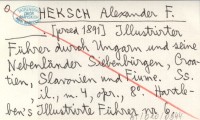 HEKSCH Alexander F.
[pred 1891] Illustrirter
Führer durch Ungarn und seine
Nebenländer Siebenbürgen, Croa-
tien, Slavonien und Fiume. Ss.
, il., m. 4, opr., 8°. Hartle-
ben's Illustrirte Führer nr